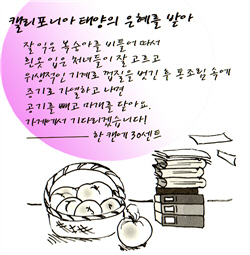 캘리포니아 태양의 은혜를 받아
잘 익은 복숭아를 비틀어 따서
흰옷 입은 처녀들이 잘 고르고
위생적인 기계로 껍질을 벗긴 후 통조림 속에
증기로 가열하고 나면
공기를 빼고 마개를 닫아요.
가게에서 기다리겠습니다!
한 캔에 30센트